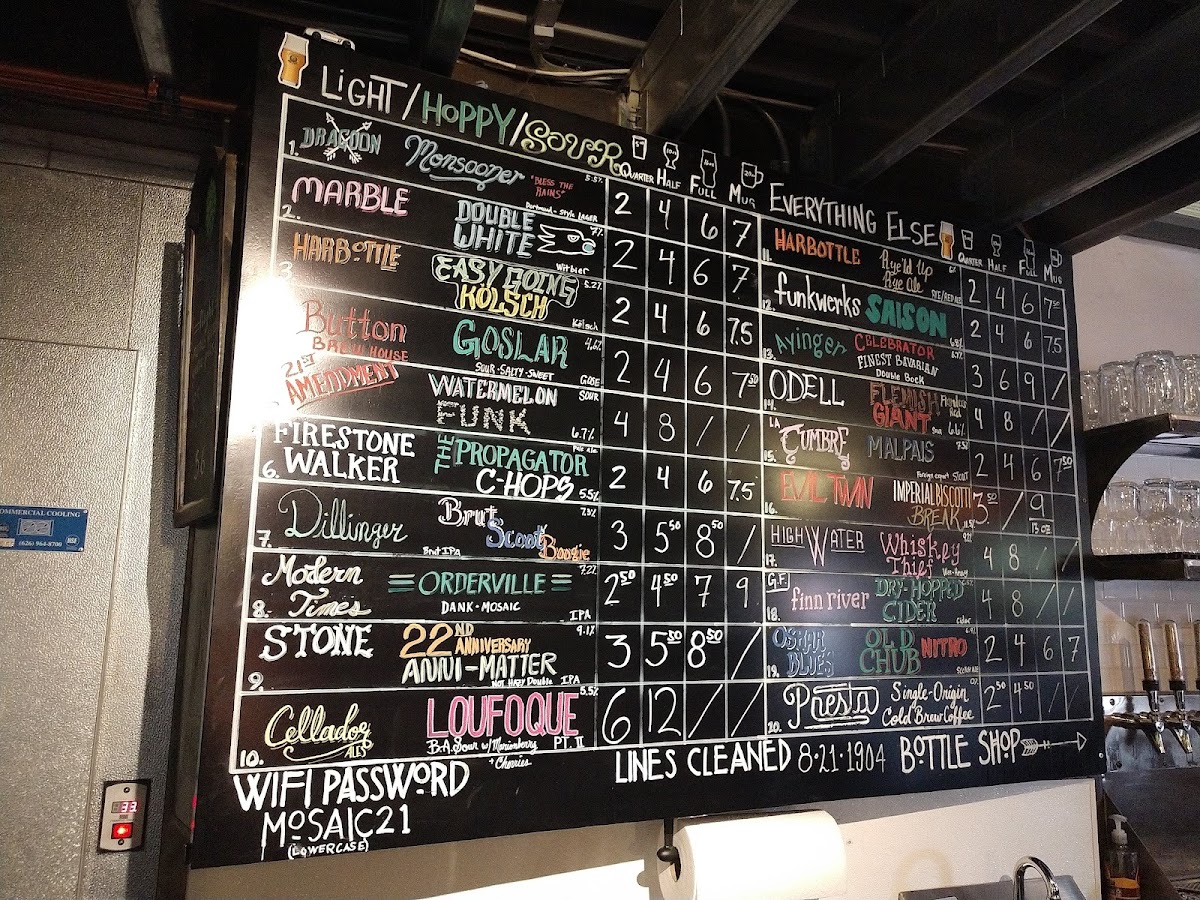 LIGHT/HOPPY/SOUR QUARTER HALF FULL MUG
1. DRAGOON Monsooner "BLESS THE RAINS" 5.5% Portmund-Style LAGER 2 4 6 7
2. MARBLE DOUBLE WHITE 7% Witbier 2 4 6 7
3. HARBOTTLE EASY GOING KÖLSCH 5.2% Kölsch 2 4 6 7.5
Button BREW HOUSE GOSLAR 4.6% SOUR-SALTY-SWEET GOSE 2 4 6 7.50
21ST AMENDMENT WATERMELON FUNK SOUR 6.7% 4 8 / /
6. FIRESTONE WALKER THE PROPAGATOR C-HOPS Pale ale 5.5% 2 4 6 7.5
7. Dillinger Brut Scoot Boogie Brut IPA 3 5.50 8.50 /
8. Modern Times =ORDERVILLE= 7.2% DANK-MOSAIC IPA 2.50 4.50 7 9
9. STONE 22ND ANNIVERSARY ANNI-MATTER 9.1% NOT HAZY Double IPA 3 5.50 8.50 /
10. Cellador ALES LOUFOQUE 5.5% B.A. Sour w/ Marionberry + Cherries PT. II 6 12 / /
EVERYTHING ELSE QUARTER HALF FULL MUG
11. HARBOTTLE Rye'ld Up Rye Ale RYE/RED ALE 2 4 6 7.50
12. funkwerks SAISON 6.8% 2 4 6 7.5
13. Ayinger CELEBRATOR 6.7% FINEST BAVARIAN Double Bock 3 6 9 /
14. ODELL FLEMISH GIANT Flanders Red Sour 6.6% 4 8 / /
15. LA CUMBRE MALPAIS 7.5% Foreign export STOUT 2 4 6 7.50
16. EVIL TWIN IMPERIAL BISCOTTI BREAK 3.50 / 9 13 OZ
17. HIGH WATER Whiskey Thief 4 8 / /
18. G.F. finn river DRY-HOPPED CIDER Cider 4 8 / /
19. OSKAR BLUES OLD CHUB NITRO SCOTCH ALE 2 4 6 7
20. Presta Single-Origin Cold Brew Coffee 0% 2.50 4.50 / /
WIFI PASSWORD
MOSAIC21
(LOWERCASE)
LINES CLEANED 8·21·1984 BOTTLE SHOP
COMMERCIAL COOLING
(626) 964-8700
33